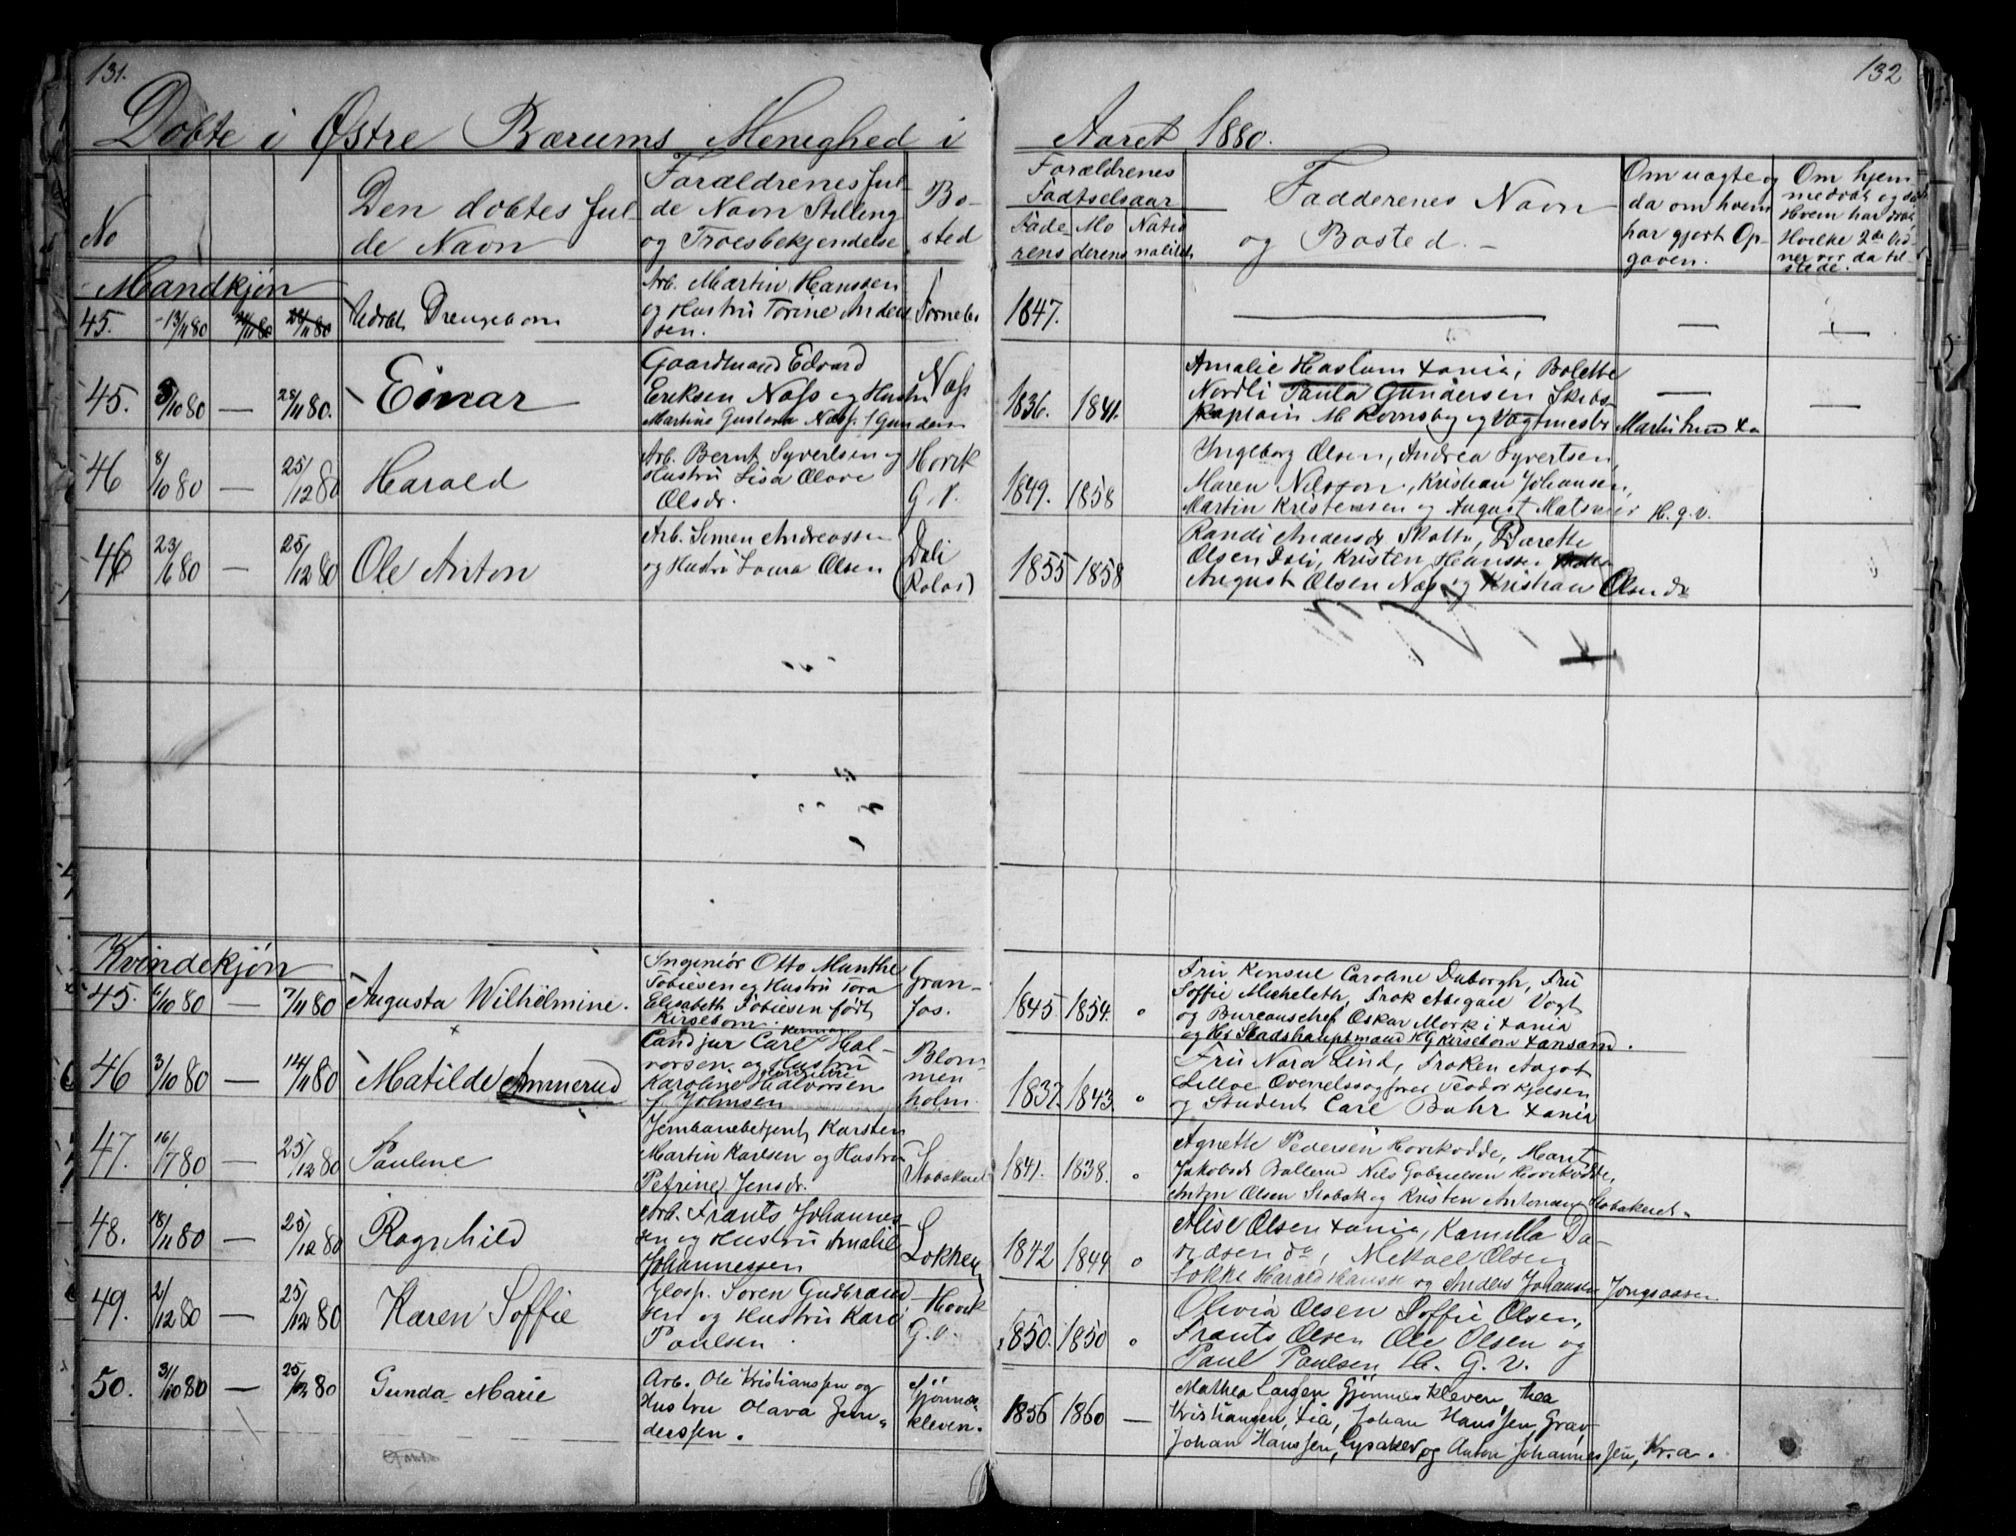 131.
132
Døbte i Østre Bærums Menighed i
Aaret 1880.
No
Den døbtes ful
de Navn
Forældrenes ful
de Navn Stilling
og Troesbekjendelse
Bo-
sted
Forældrenes
Fødselsaar
Fade
rens
Mo
derens
Natio
nalitet
Faddernes Navn
og Bosted.
Om uægte og
da om hvem
har gjort Op-
gaven.
Om hjem
medøbt og da
Hvem har døbt
Hvilke 2de Vid-
ner var da til
stede.
Mandkjøn
45. 13/11 80 21/11 80 28/11 80
Udøbt Drengebarn
Arb. Martin Hanssen
og Hustru Torine Ander
sen.
Fornebo
1847.
45. 3/10 80 — 28/11 80.
Einar
Gaardmand Edvard
Eriksen Næss og Hustru
Martine Gustava Næss f. Gundersen
Næss
1836. 1841.
Amalie Haslum Xania, Bolette
Nordli Paula Gundersen Skibs
kaptain M Kornsby og Vogtmester Martin Lund Xa
46 8/10 80 — 25/12 80
Harald
Arb. Bernt Syvertsen og
Hustru Lisa Olove
Olsdr.
Høvik
G. V.
1849. 1858
Ingeborg Olsen, Andrea Syvertsen,
Maren Nilsson, Kristian Johansen,
Martin Kristensen og August H. g. v.
46 23/6 80 — 25/12 80
Ole Anton
Arb. Simen Andreassen
og Hustru Laura Olsen
Dæli
1855 1858
Randi Andersdr Skotta, Berette
Olsen Dæli, Kristen Hanssen
August Olsen Næss og Kristian Olsen do
Kvindekjøn
45. 6/10 80 — 7/11 80
Augusta Wilhelmine.
Ingeniör Otto Munthe
Tobiesen og Hustru Tora
Elisabeth Tobiesen født
Kirsebom.
Gran-
fos.
1845. 1854. "
Fru Konsul Caroline Duborgh, Fru
Soffie Micheleth, Frøk Abigael Vogt
og Bureauchef Oskar Mork i Xania
og Hr Stadshauptmand HG Kirsebom Xansand.
46 3/10 80 — 14/11 80
Matilde Ammerud
Cand jur Carl Herman Hal-
vorsen og Hustru
Karoline Halvorsen
f. Johnsen
Blom
men
holm.
1837. 1843. "
Fru Nora Lind, Frøken Aagot
Lilloe Overretssagfører Teodor Kjelsen
og Student Carl Buhr Xania
47. 16/7 80 — 25/12 80
Pauline
Jernbanebetjent Karsten
Martin Karlsen og Hustru
Petrine Jensdr.
Stabækket
1841. 1838. "
Agnette Pedersen Høvikodde, Marit
Jakobsdr Ballerud Nils Gabrielsen Høvikodde,
Anton Olsen Stabæk og Kristen Antonsen Stabækket.
48. 18/11 80 — 25/12 80
Ragnhild
Arb. Frants Johannes-
sen og Hustru Amalie
Johannessen
Løkken
1842 1844 "
Alise Olsen Xania, Kamilla Da-
vidsen do, Mikael Olsen
Løkke Harald Hansse og Anders Johansen Jongsaasen
49. 2/12 80 — 25/12 80
Karen Soffie
Glasp. Søren Gudbrand-
sen og Hustru Kari
Paulsen
Høvik
G.V.
1850. 1850 "
Olivia Olsen Soffie Olsen,
Frants Olsen Ole Olsen og
Paul Paulsen H. G. V.
50. 3/10 80 — 25/12 80
Gunda Marie
Arb. Ole Kristianssen og
Hustru Olava Gun-
derssen.
Gjønnes-
kleven.
1856 1860 —
Mathea Larsen Gjønneskleven, Thea
Kristiansen, Lia, Johan Hanssen, Grav,
Johan Hanssen, Lysaker, og Anton Johannessen, Kr.a.